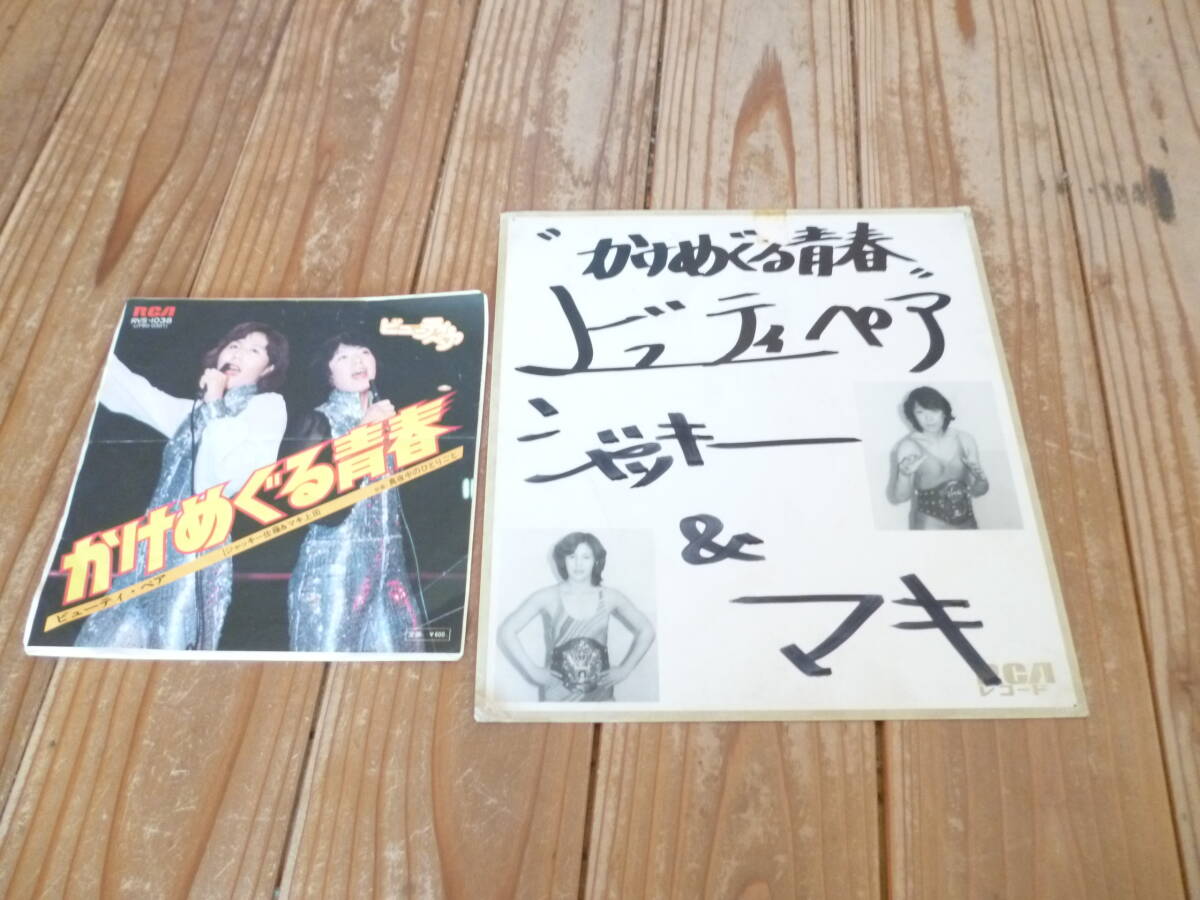 RCA
RVS-1038
ビューティ・ペア
かけめぐる青春
ジャッキー佐藤&マキ上田
真夜中のひとりごと
ビューティ・ペア
定価 ¥600
"かけめぐる青春"
ビューティペア
ジャッキー
&
マキ
RCA
レコード